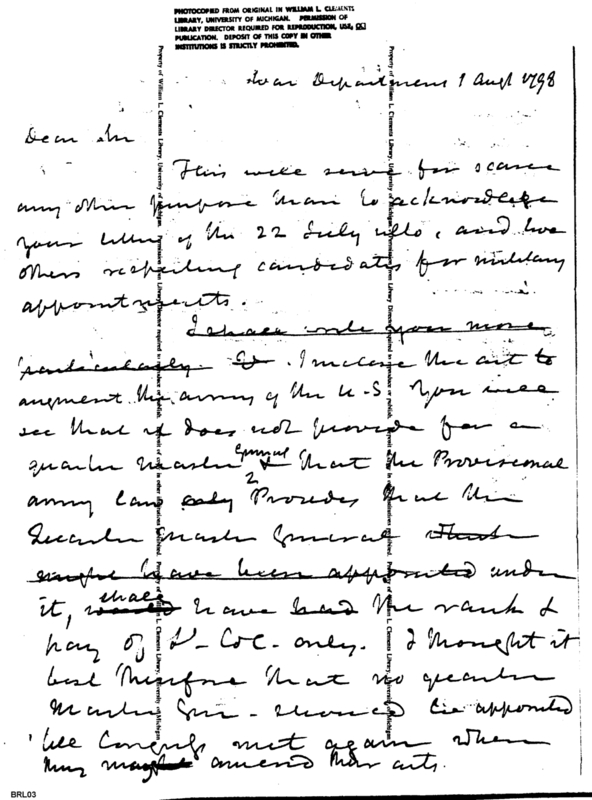 PHOTOCOPIED FROM ORIGINAL IN WILLIAM L. CLEMENTS
LIBRARY, UNIVERSITY OF MICHIGAN. PERMISSION OF
LIBRARY DIRECTOR REQUIRED FOR REPRODUCTION, USE, OR
PUBLICATION. DEPOSIT OF THIS COPY IN OTHER
INSTITUTIONS IS STRICTLY PROHIBITED.
War Department 1 Augt 1798
Dear Sir
This will serve for scarce
any other purpose than to acknowledge
your letter of the 22 July ullo, and two
others respecting candidates for military
appointments.
I shall write you more
particularly. I inclose the act to
augment the army of the U-S You will
see that it does not provide for a
quarter master General & that the Provisional
army law only Provides that the
Quarter Master General
might have been appointed under
it, shall have had the rank &
pay of Lt- Col- only. I thought it
best therefore that no quarter
Master Gen- should be appointed
till Congress met again when
they might amend their acts.
Property of William L. Clements Library, University of Michigan
BRL03